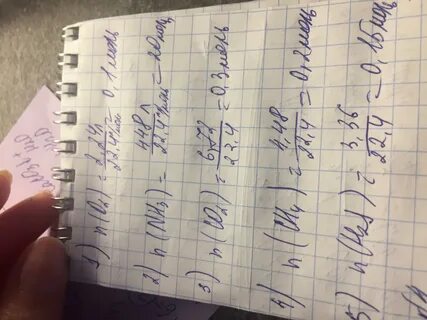 1) n(O₂) = 2,24л / 22,4 л/моль = 0,1 моль
2) n(NH₃) = 448 л / 22,4 л/моль = 20 моль
3) n(CO₂) = 6,72 / 22,4 = 0,3 моль
4) n(CH₄) = 4,48 / 22,4 = 0,2 моль
5) n(H₂S) = 3,36 / 22,4 = 0,15 моль